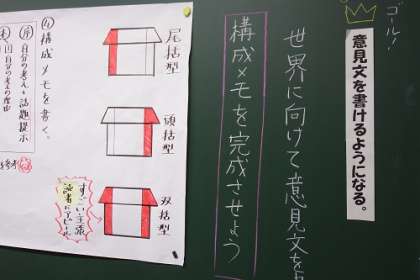 ゴール!
意見文を書けるようになる。
世界に向けて意見文を
構成メモを完成させよう
尾括型
頭括型
双括型
すごい主張
読者にアピール
④構成メモを書く。
序 自分の考え・話題提示
自分の考えの理由